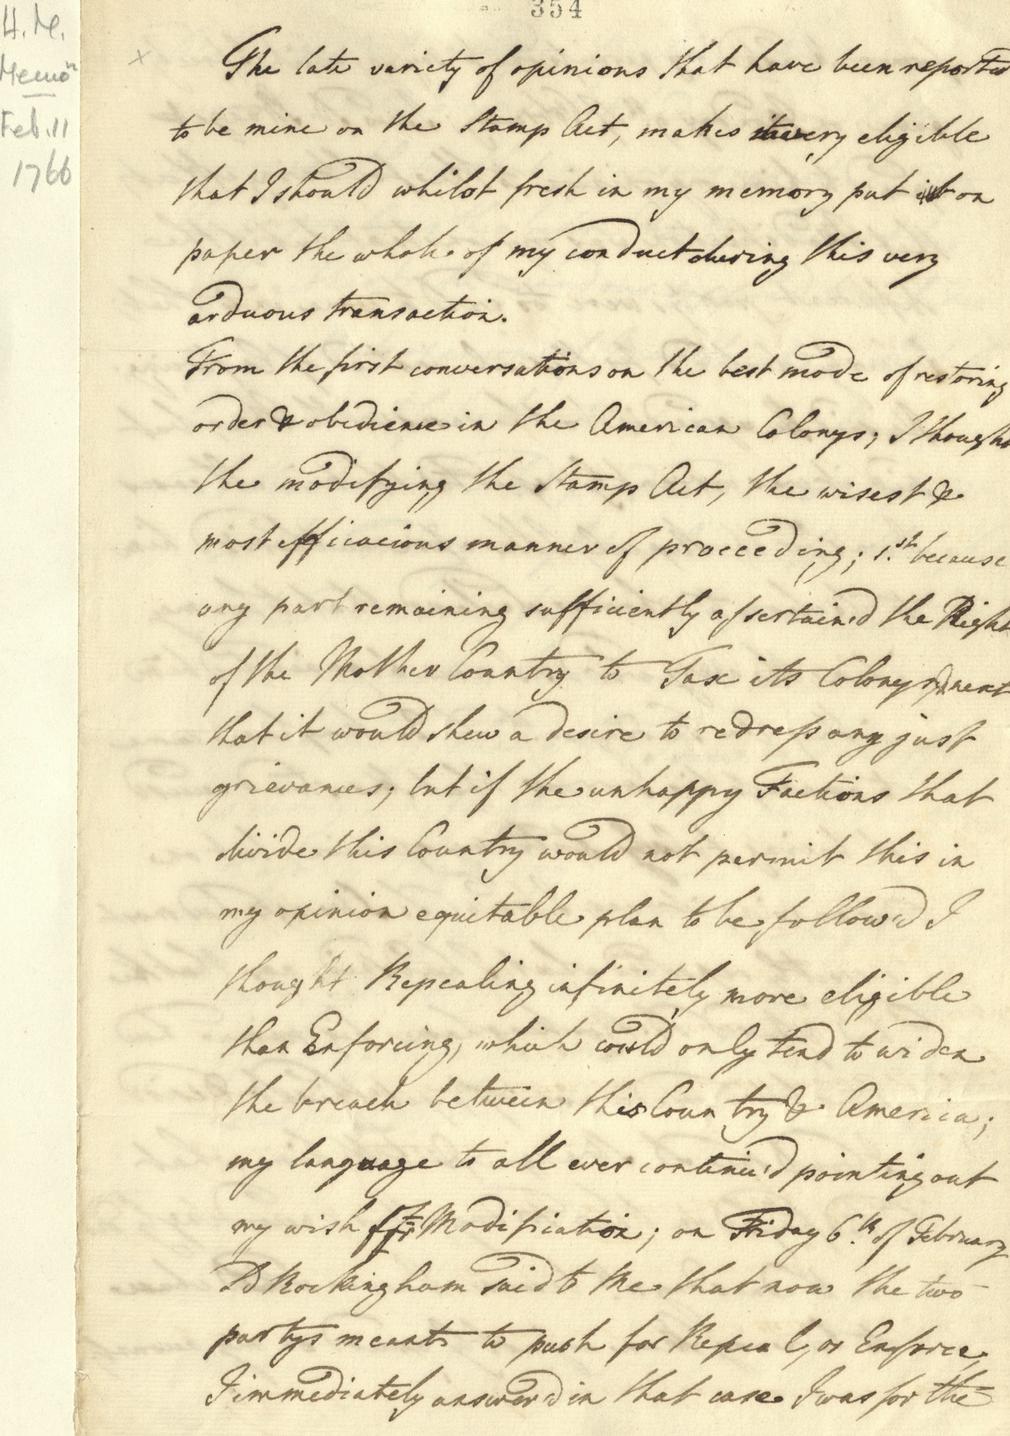 354
H. M.
Memo͞n
Feb. 11
1766
The late variety of opinions that have been reported
to be mine on the Stamp Act, makes it very eligible
that I should whilst fresh in my memory put on
paper the whole of my conduct during this very
arduous transaction.
From the first conversations on the best mode of restoring
order & obedience in the American Colonys; I thought
the modifying the Stamp Act, the wisest &
most efficacious manner of proceeding; 1.st because
any part remaining sufficiently assertain'd the Right
of the Mother Country to Tax its Colonys & next
that it would shew a desire to redress any just
grievances; but if the unhappy Factions that
divide this Country would not permit this in
my opinion equitable plan to be follow'd I
thought Repealing infinitely more eligible
than Enforcing, which could only tend to widen
the breach between this Country & America;
my language to all ever continued pointing out
my wish for Modification; on Friday 6.th of February
Ld Rockingham said to me that now the two
partys meant to push for Repeal, or Enforce,
I immediately answer'd in that case I was for the